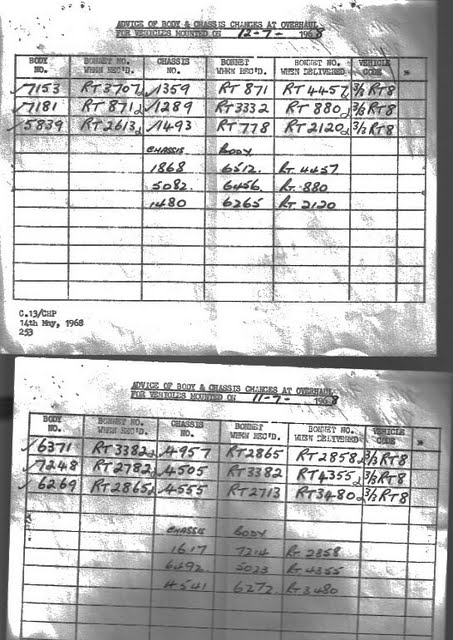 ADVICE OF BODY & CHASSIS CHANGES AT OVERHAUL
FOR VEHICLES MOUNTED ON 12-7- 1968
BODY NO. BONNET NO. WHEN REC'D. CHASSIS NO. BONNET WHEN REC'D. BONNET NO. WHEN DELIVERED VEHICLE CODE
7153 RT3707 1359 RT 871 RT 4457 3/3 RT8
7181 RT 871 1289 RT3332 RT 880 3/3 RT8
5839 RT2613 1493 RT 778 RT2120 3/3 RT8
CHASSIS BODY
1868 6512. RT 4457
5082. 6456. RT 880
1480 6265 RT 2120
C.13/CHP
14th May, 1968
253
ADVICE OF BODY & CHASSIS CHANGES AT OVERHAUL
FOR VEHICLES MOUNTED ON 11-7- 1968
BODY NO. BONNET NO. WHEN REC'D. CHASSIS NO. BONNET WHEN REC'D. BONNET NO. WHEN DELIVERED VEHICLE CODE
6371 RT3382 4957 RT2865 RT2858 3/3 RT8
7248 RT2782 4505 RT3382 RT4355 3/3 RT8
6269 RT2865 4555 RT2713 RT3480 3/3 RT8
CHASSIS BODY
1617 7214 RT 2858
6492 5023 RT 4355
4541 6272 RT 3480